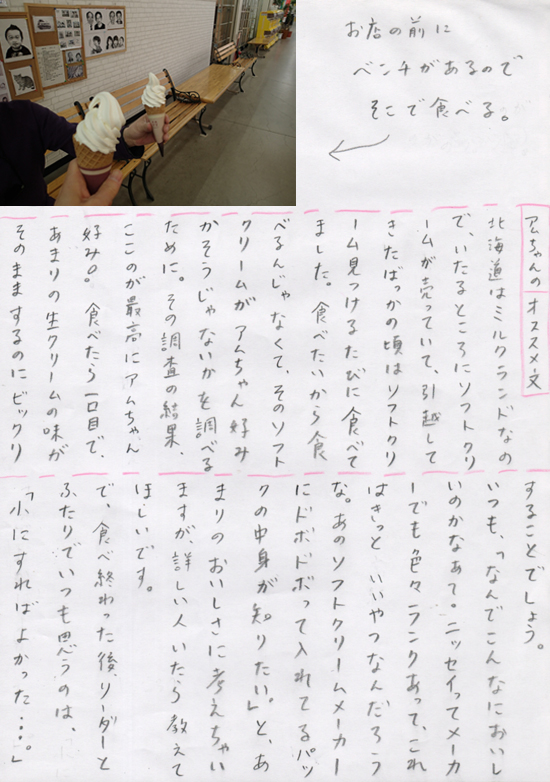 お店の前に
ベンチがあるので
そこで食べる。
アムちゃんのオススメ文
北海道はミルクランドなの
で、いたるところにソフトクリ
ームが売っていて、引越して
きたばっかの頃はソフトクリ
ーム見つけるたびに食べて
ました。食べたいから食
べるんじゃなくて、そのソフト
クリームがアムちゃん好み
かそうじゃないかを調べる
ために。その調査の結果、
ここのが最高にアムちゃん
好み。食べたら一口目で、
あまりの生クリームの味が
そのまますするのにビックリ
することでしょう。
いつも、「なんでこんなにおいし
いのかなぁて。ニッセイってメーカ
ーでも色々ランクあって、これ
はきっといいやつなんだろう
な。あのソフトクリームメーカー
にドボドボって入れてるパッ
クの中身が知りたい」と、あ
まりのおいしさに考えちゃい
ますが、詳しい人いたら教えて
ほしいです。
で、食べ終わった後、リーダーと
ふたりでいつも思うのは、
「小にすればよかった…。」